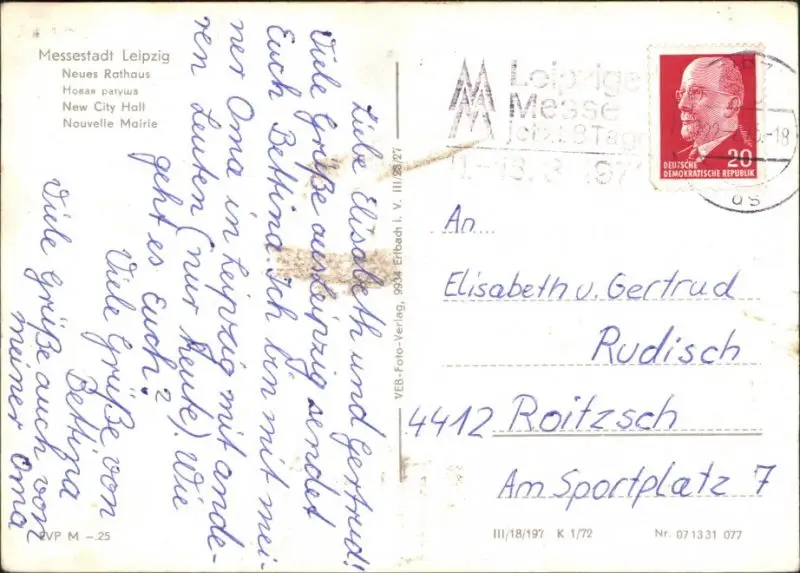 Messestadt Leipzig
Neues Rathaus
Новая ратуша
New City Hall
Nouvelle Mairie
Liebe Elisabeth und Gertrud!
Viele Grüße aus Leipzig sendet
Euch Bettina. Ich bin mit mei-
ner Oma in Leipzig mit ande-
ren Leuten (nur heute). Wie
geht es Euch?
Viele Grüße von
Bettina
Viele Grüße auch von
meiner Oma
EVP M –.25
VEB-Foto-Verlag, 9934 Erlbach i. V. III/23/27
Leipziger
Messe
jetzt 8 Tage
DEUTSCHE 20
DEMOKRATISCHE REPUBLIK
-18
An
Elisabeth u. Gertrud
Rudisch
4412 Roitzsch
Am Sportplatz 7
III/18/197 K 1/72 Nr. 07 13 31 077